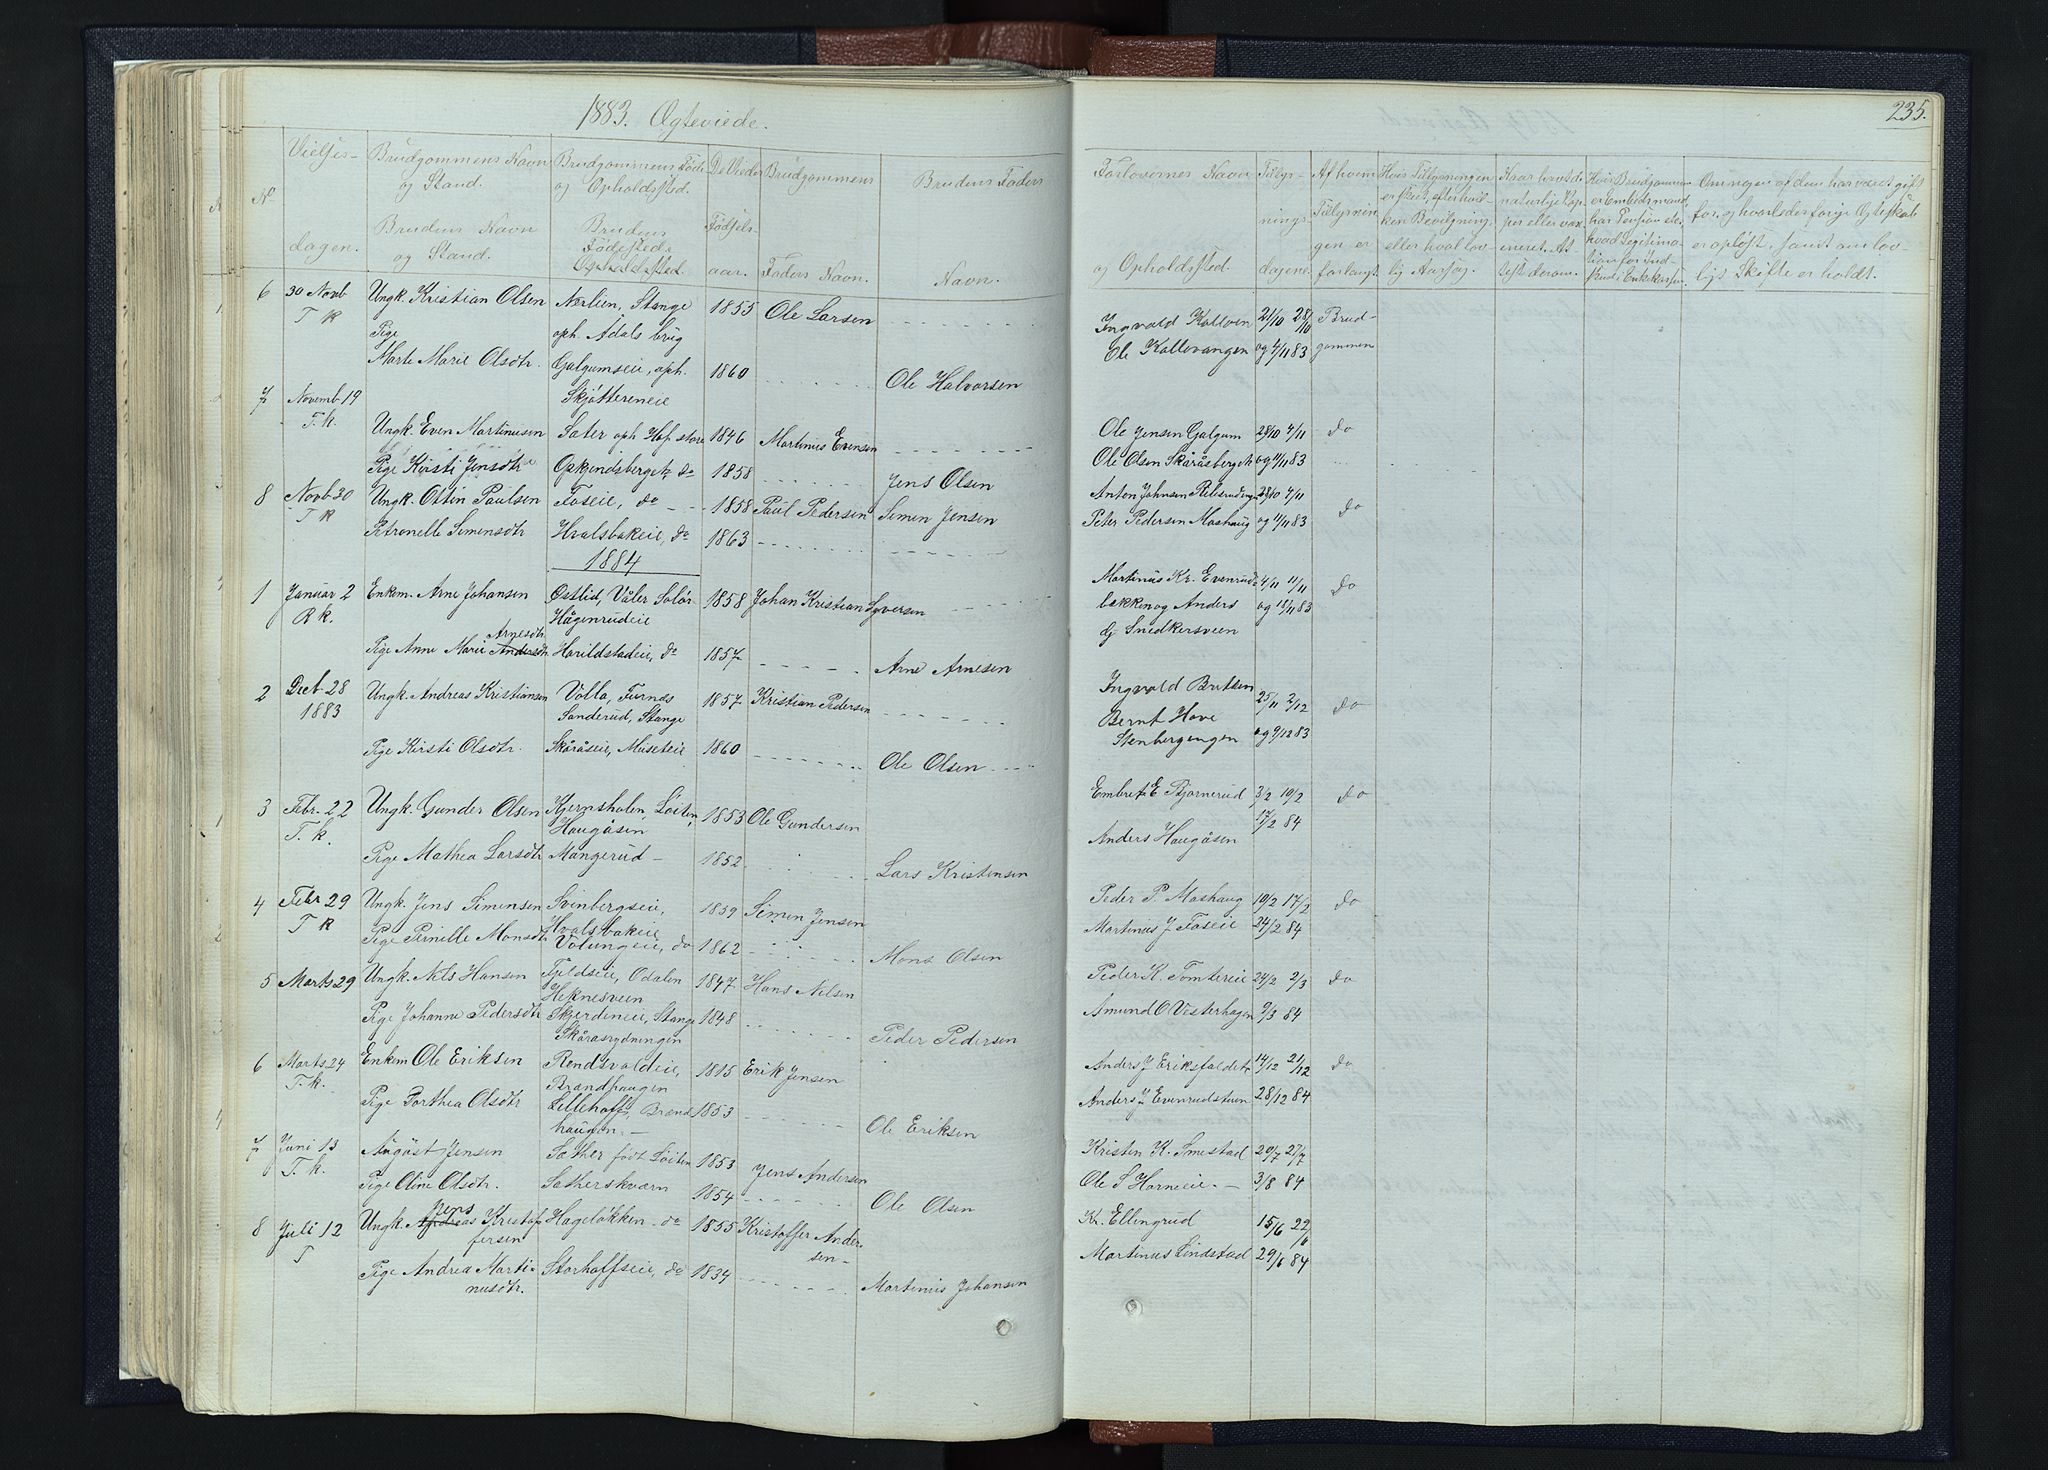 1883. Ægteviede.
235.
No
Vielses-
dagen.
Brudgommens Navn
og Stand.
Brudens Navn
og Stand.
Brudgommens Føde
og Opholdssted.
Brudens
Fødested
Opholdssted.
De Vieder
Fødsels-
aar.
Brudgommens
Faders Navn.
Brudens Faders
Navn.
Forlovernes Navn
og Opholdssted.
Tillys-
nings-
dagene.
Af hvem
Tillysnin
gen er
forlangt.
Hvis Tillysningen
er skeet, efter hvil-
ken Bevilgning
eller hvad lov-
lig Aarsag.
Naar havt de
naturlige Kop-
per eller vac-
cineret. At-
test derom.
Hvis Brudgommen
er Embedsmand
har Pension etc.
hvad Legitima-
tion for Ind-
skud i Enkekassen.
Om nogen af dem har været gift
før, og hvorledes forrige Ægteskab
er opløst, samt om lov-
ligt Skifte er holdt.
6 30 Novb Ungk. Kristian Olsen Nærlien, Stange 1855 Ole Larsen
T k Pige oph. Ådals brug
Marte Marie Olsdtr. Galgumseie, oph. 1860 Ole Halvorsen
Skjøttereneie
Ingvald Kalloven 21/10 28/10 Brud-
Ole Kallovangen og 4/11 83 gommen
7 Novemb 19
T. k.
Ungk. Even Martinusen Sæter oph Hof store 1846 Martinus Evensen
Pige Kirsti Jensdtr Opkjendsberget, do 1858 Jens Olsen
Ole Jensen Galgum 28/10 4/11 do
Ole Olsen Skåråsberget og 11/11 83
8 Novb 30 Ungk. Ottin Paulsen Faseie, do 1858 Paul Pedersen Simen Jensen
T k Petronelle Simensdtr Hvalsbakeie, do 1863
Anton Johnsen 28/10 4/11
Peter Pedersen Mashaug og 11/11 83 do
1884
1 Januar 2 Enkem. Arne Johansen Østlid, Våler Solør 1858 Johan Kristian Syversen
R k. Hågenrudeie
Arnesdtr
Pige Anne Marie Andersdtr Harildstadeie, do 1857 Arne Arnesen
Martinus Kr. Evenruds 4/11 11/11 do
bakken og Anders og 18/11 83
Gj Snedkersveen
2 Decb 28 Ungk. Andreas Kristiansen Volla, Furnæs 1857 Kristian Pedersen
1883 Sanderud, Stange
Pige Kirsti Olsdtr. Skåråseie, Museteie 1860 Ole Olsen
Ingvald Brutsen 25/11 2/12 do
Bernt Hove og 9/12 83
Stenbergengen
3 Febr. 22 Ungk. Gunder Olsen Kjernsholen, Løiten, 1853 Ole Gundersen
T. k. Haugåsen
Pige Mathea Larsdtr Mangerud 1852 Lars Kristensen
Embret E Bjørnerud 3/2 10/2 do
17/2 84
Anders Haugåsen
4 Febr 29 Ungk. Jens Simensen Svenbergseie, 1859 Simen Jensen
T k Hvalsbakeie
Pige Pernille Monsdtr Volungeie, do 1862 Mons Olsen
Peder P. Mashaug 10/2 17/2 do
Martinus J Faseie 24/2 84
5 Marts 29 Ungk. Nels Hansen Fjeldseie, Odalen 1847 Hans Nilsen
Heknesveen
Pige Johanne Pedersdtr Skjerdeneie, Stange 1848
Skårasrydningen Peder Pedersen
Peder K. Tomtereie 24/2 2/3 do
Amund O Vesterhagen 9/3 84
6 Marts 24 Enkem Ole Eriksen Rendsvoldeie, 1815 Erik Jensen
T. k. Brandhaugen
Pige Dorthea Olsdtr Lillehoff, Brand 1853
haugen. Ole Eriksen
Anders J Eriksfaldet 14/12 21/12 do
Anders J Evenrudstuen 28/12 84
7 Juni 13 August Jensen Sæther født Løiten 1853 Jens Andersen
T. k. Pige Oline Olsdtr. Sætherskværn 1854 Ole Olsen
Kristen K. Smestad 20/7 27/7
Ole S Horneie. 3/8 84
Jens
8 Juli 12 Ungk. Andreas Kristof Hageløkken do 1855 Kristoffer Ander-
T fersen sen
Pige Andrea Marti- Storhoffseie, do 1834
nusdtr. Martinus Johansen
Kr. Ellingrud 15/6 22/6
Martinus Lindstad 29/6 84